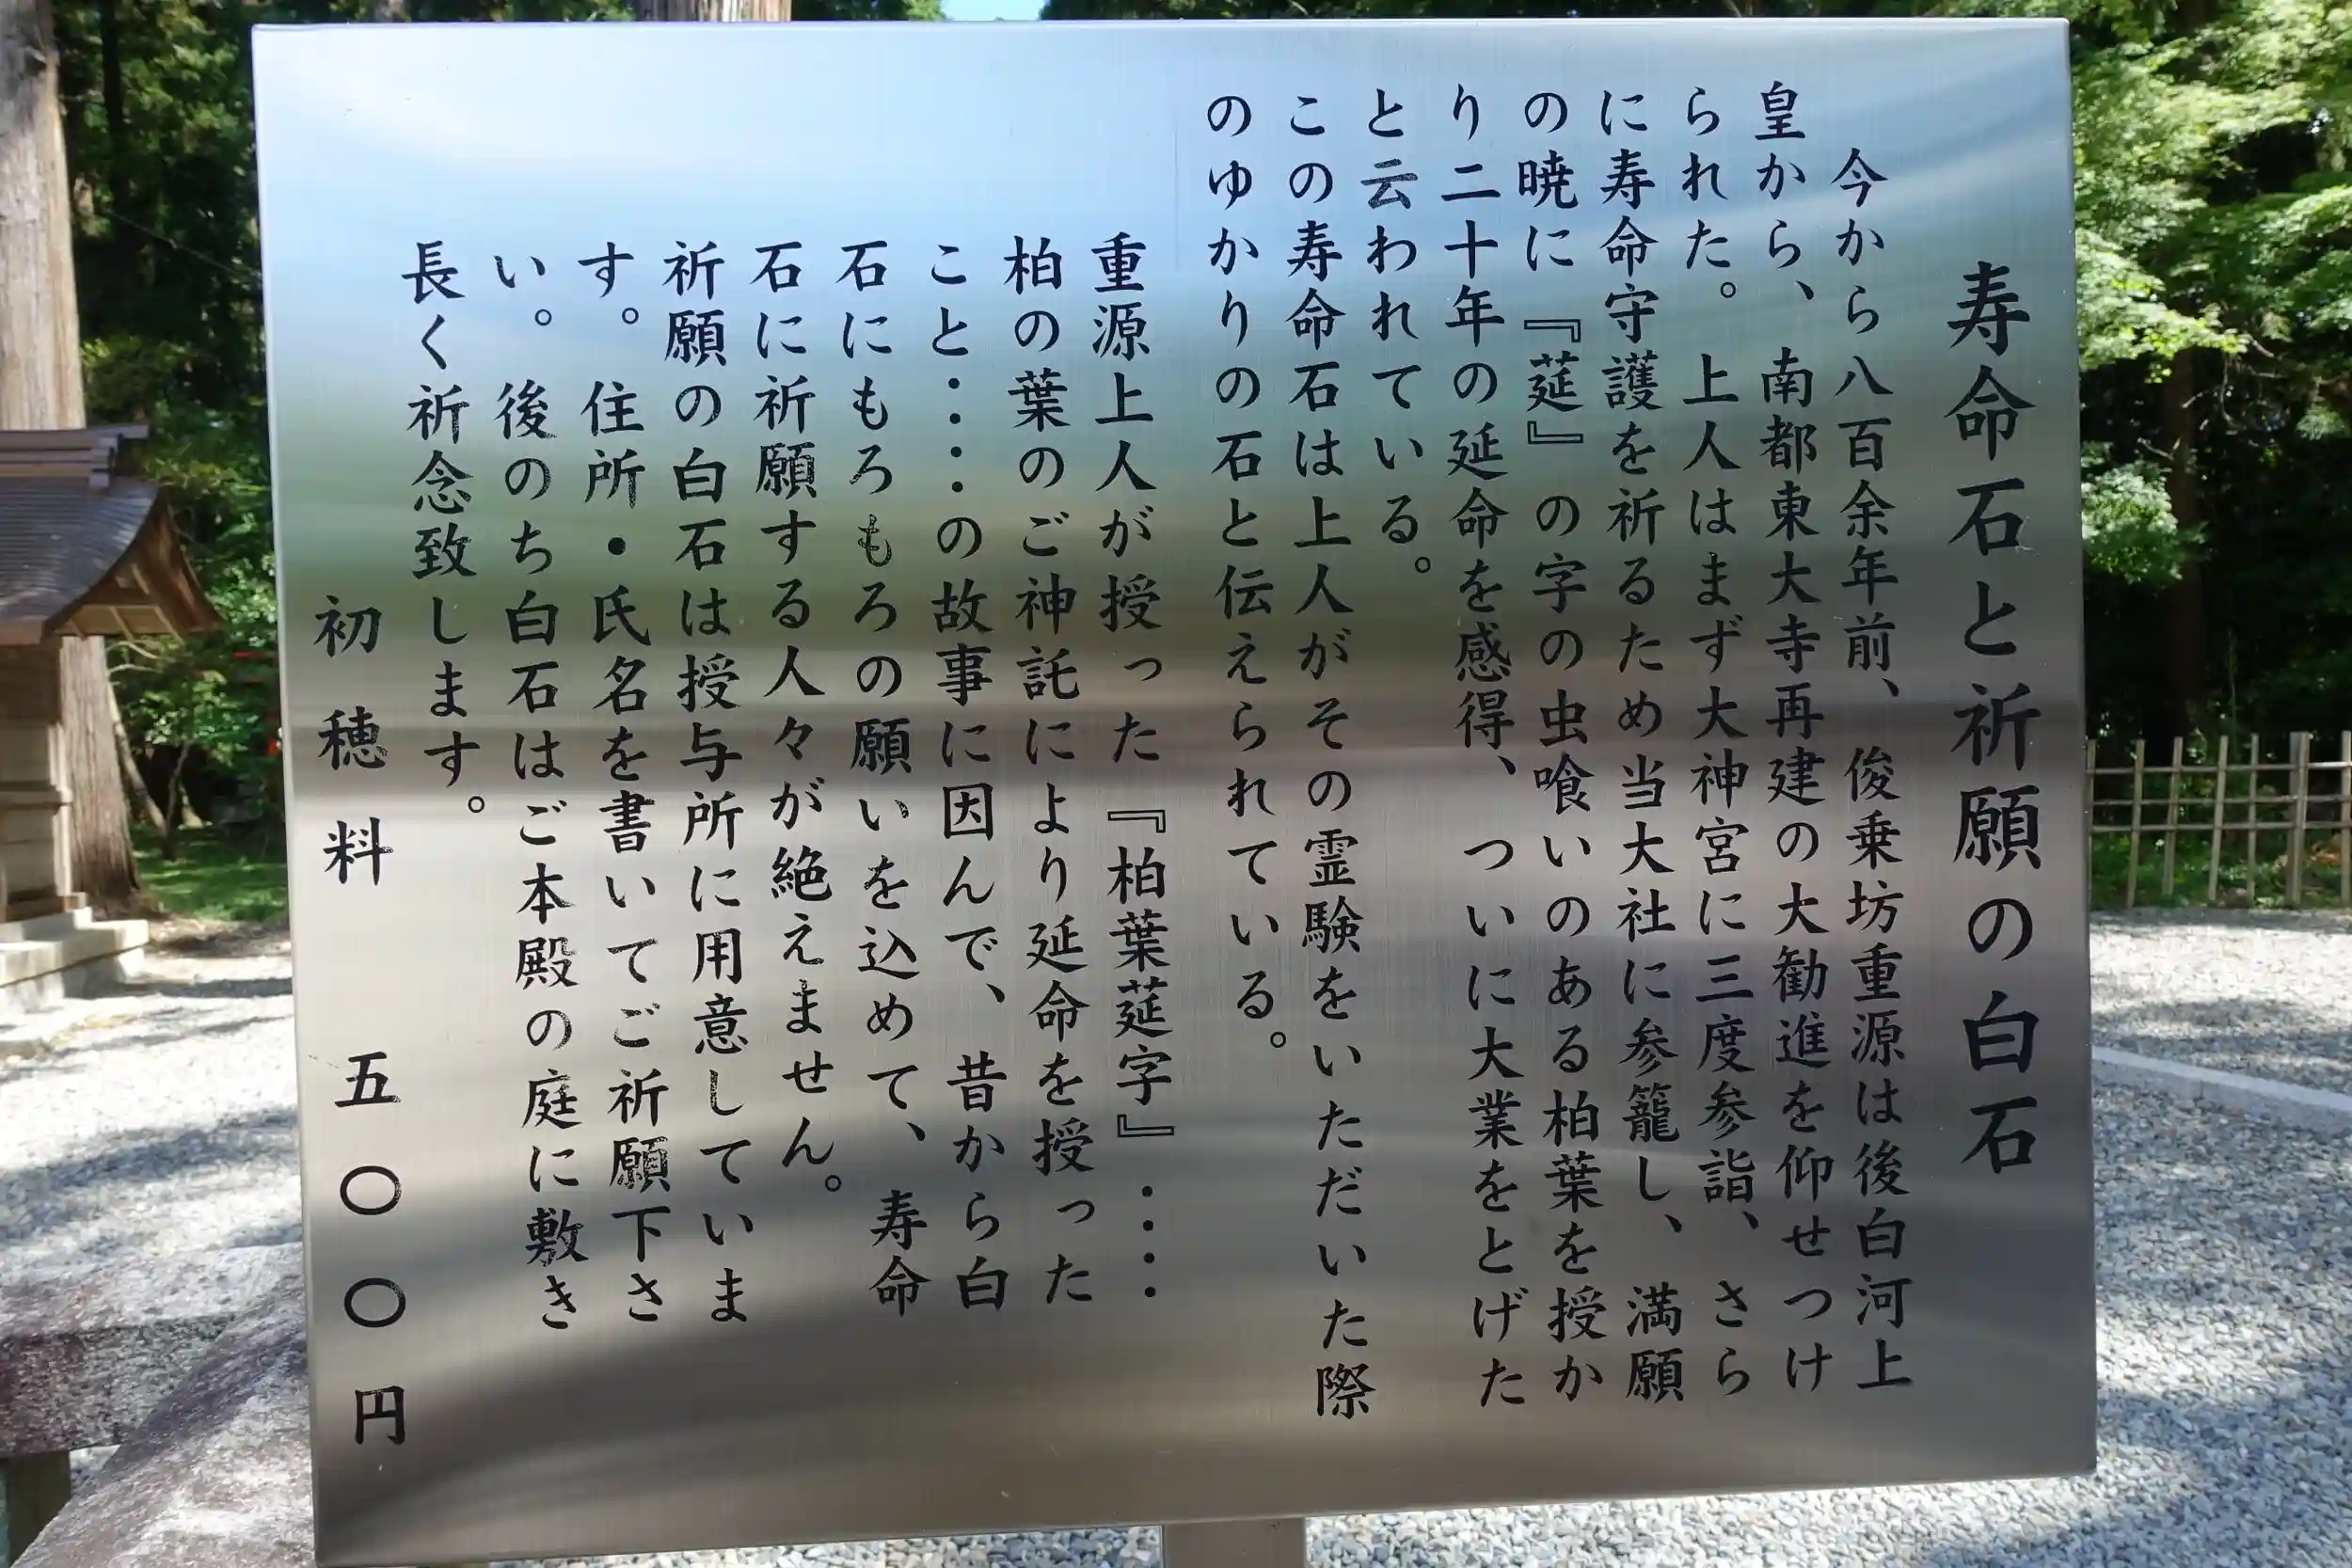 寿命石と祈願の白石
今から八百余年前、俊乗坊重源は後白河上
皇から、南都東大寺再建の大勧進を仰せつけ
られた。上人はまず大神宮に三度参詣、さら
に寿命守護を祈るため当大社に参籠し、満願
の暁に『莚』の字の虫喰いのある柏葉を授か
り二十年の延命を感得、ついに大業をとげた
と云われている。
この寿命石は上人がその霊験をいただいた際
のゆかりの石と伝えられている。
重源上人が授った『柏葉莚字』‥‥
柏の葉のご神託により延命を授った
こと‥‥の故事に因んで、昔から白
石にもろもろの願いを込めて、寿命
石に祈願する人々が絶えません。
祈願の白石は授与所に用意していま
す。住所・氏名を書いてご祈願下さ
い。後のち白石はご本殿の庭に敷き
長く祈念致します。
初穂料 五〇〇円